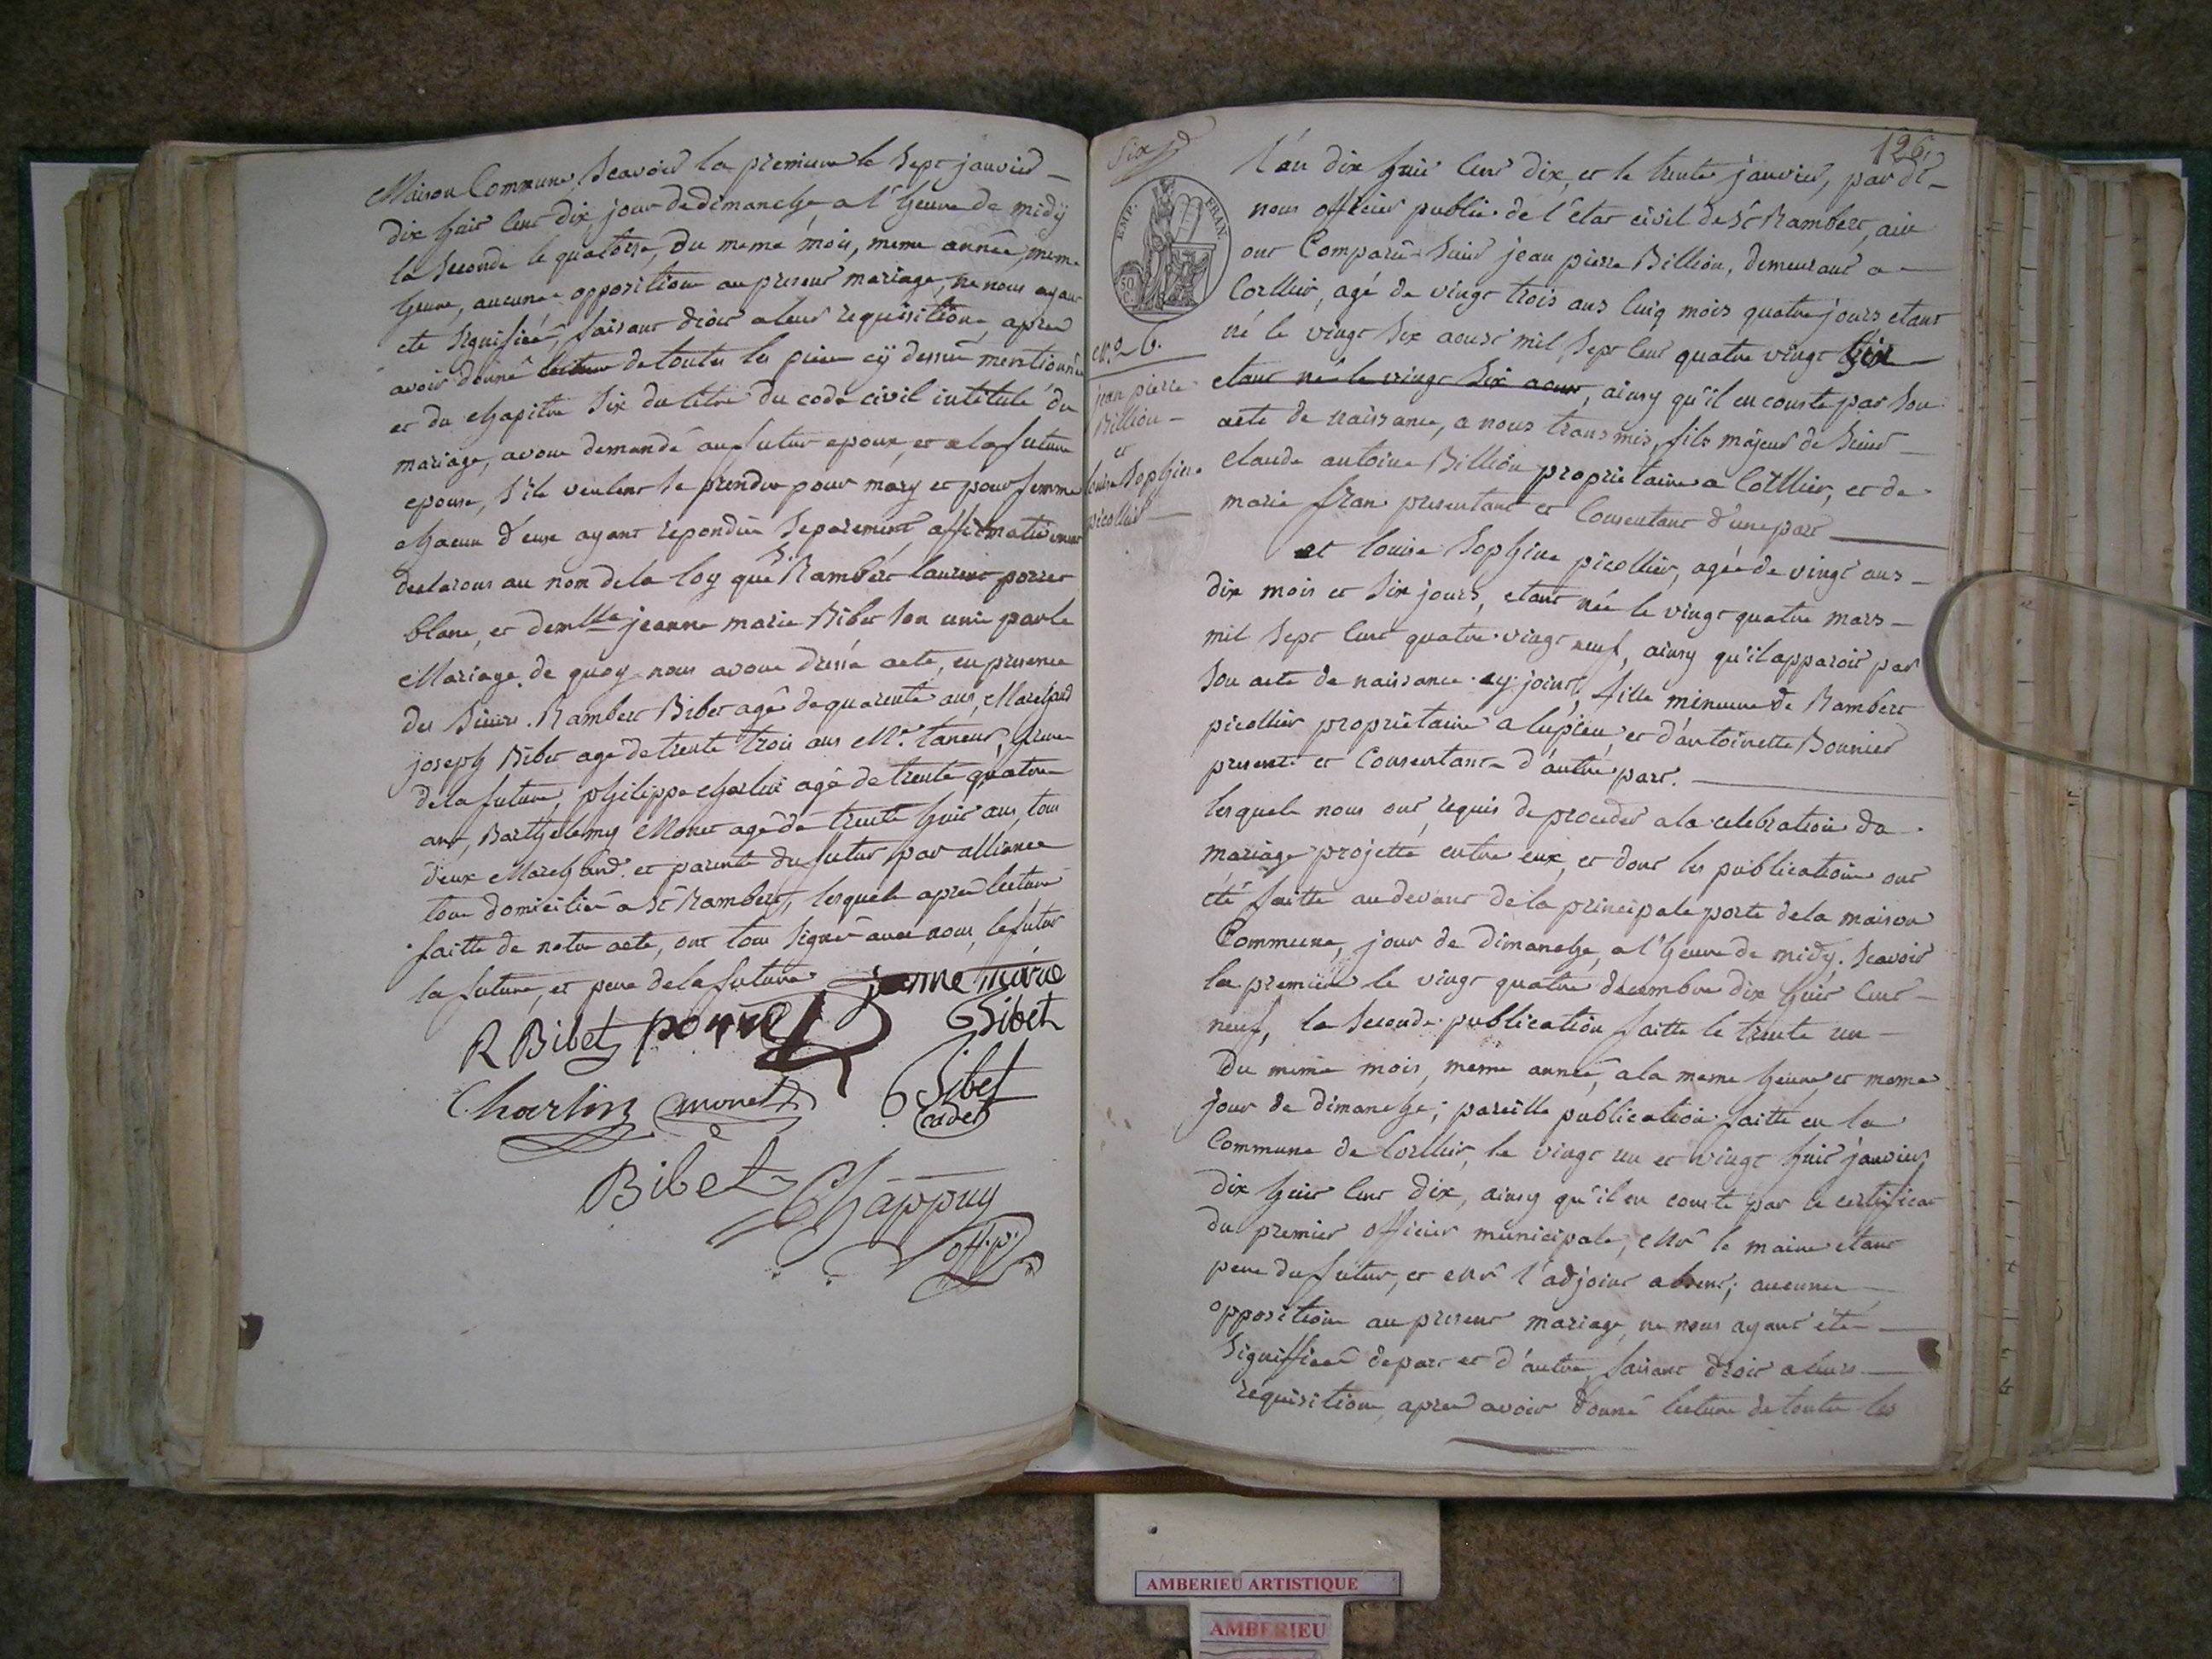 Maison Commune, Scavoir la premiere le Sept janvier
dix huit cent dix jour de dimanche, a l'heure de midÿ
la Seconde le quatorse, du meme mois, meme année, meme
heure, aucune opposition au present mariage, ne nous ayant
eté Signifiée, faisant droit a leur requisition, apres
avoir donné lecture de toutes les pieces cÿ dessus mentionnés
et du chapitre Six du titre du code civil intitulé du
mariage, avons demandé au futur epoux, et a la future
epouse, s'ils veulent se prendre pour mary et pour femme
chacun d'eux ayant repondu Separement affirmativement
declarons au nom de la loy que St Rambert laurent porret
blanc, et demlle jeanne marie Bibet Son unis par le
Mariage de quoy nous avons dressé acte, en presence
des Sieurs Rambert Bibet agé de quarente ans, Marchand
joseph Bibet agé de trente trois ans Md. taneur, freres
de la future, philippe charlin agé de trente quatre
ans, Barthelemy Monet agé de trente huit ans, tous
deux Marchand. et parents du futur par alliance
tous domiciliés a St Rambert, lesquels apres lecture
faitte de notre acte, ont tous Signés avec nous, le futur
la future, et pere de la future
janne marie
R Bibet porret
Bibet
Charlin monet
Bibet
cadet
Bibet
Chappuy
off. p.
Six
EMP. FRAN.
50 C.
No. 6.
jean pierre
Billion
et
louise Sophine
picollier
126
L'an dix huit cent dix, et le trente janvier, par dt
nous officier public de l'état civil de St Rambert, ain
ont Comparu Sieur jean pierre Billion, demeurant a
Corllier, agé de vingt trois ans cinq mois quatre jours etant
né le vingt Six aoust mil Sept cent quatre vingt Six
etant né le vingt Six aout, ainsy qu'il en conste par Son
acte de naissance, a nous transmis, fils majeur de Sieur
claude antoine Billion proprietaire a Corllier, et de
marie fran presentant et Consentant d'une part
et louise Sophine picollier, agée de vingt ans
dix mois et Six jours, etant née le vingt quatre mars
mil Sept cent quatre vingt neuf, ainsy qu'il apparoit par
Son acte de naissance cy joint, fille mineure de Rambert
picollier proprietaire a lupieu, et d'antoinette Bonnier
presente et Consentante d'autre part.
lesquels nous ont requis de proceder a la celebration du
mariage projetté entre eux, et dont les publications ont
eté faitte au devant de la principale porte de la maison
Commune, jour de dimanche, a l'heure de midÿ. Scavoir
la premiere le vingt quatre decembre dix huit cent
neuf, la Seconde publication faitte le trente un
du meme mois, meme année, a la meme heure et meme
jour de dimanche; pareille publication faitte en la
Commune de Corllier, le vingt un et vingt huit janvier
dix huit cent dix, ainsy qu'il en conste par le certificat
du premier officier municipale, Mr le maire etant
pere du futur, et Mr l'adjoint absent; aucunes
opposition au present mariage, ne nous ayant eté
Signiffiée de part et d'autre, faisant droit a leurs
requisition, apres avoir donné lecture de toutes les
AMBERIEU ARTISTIQUE
AMBERIEU